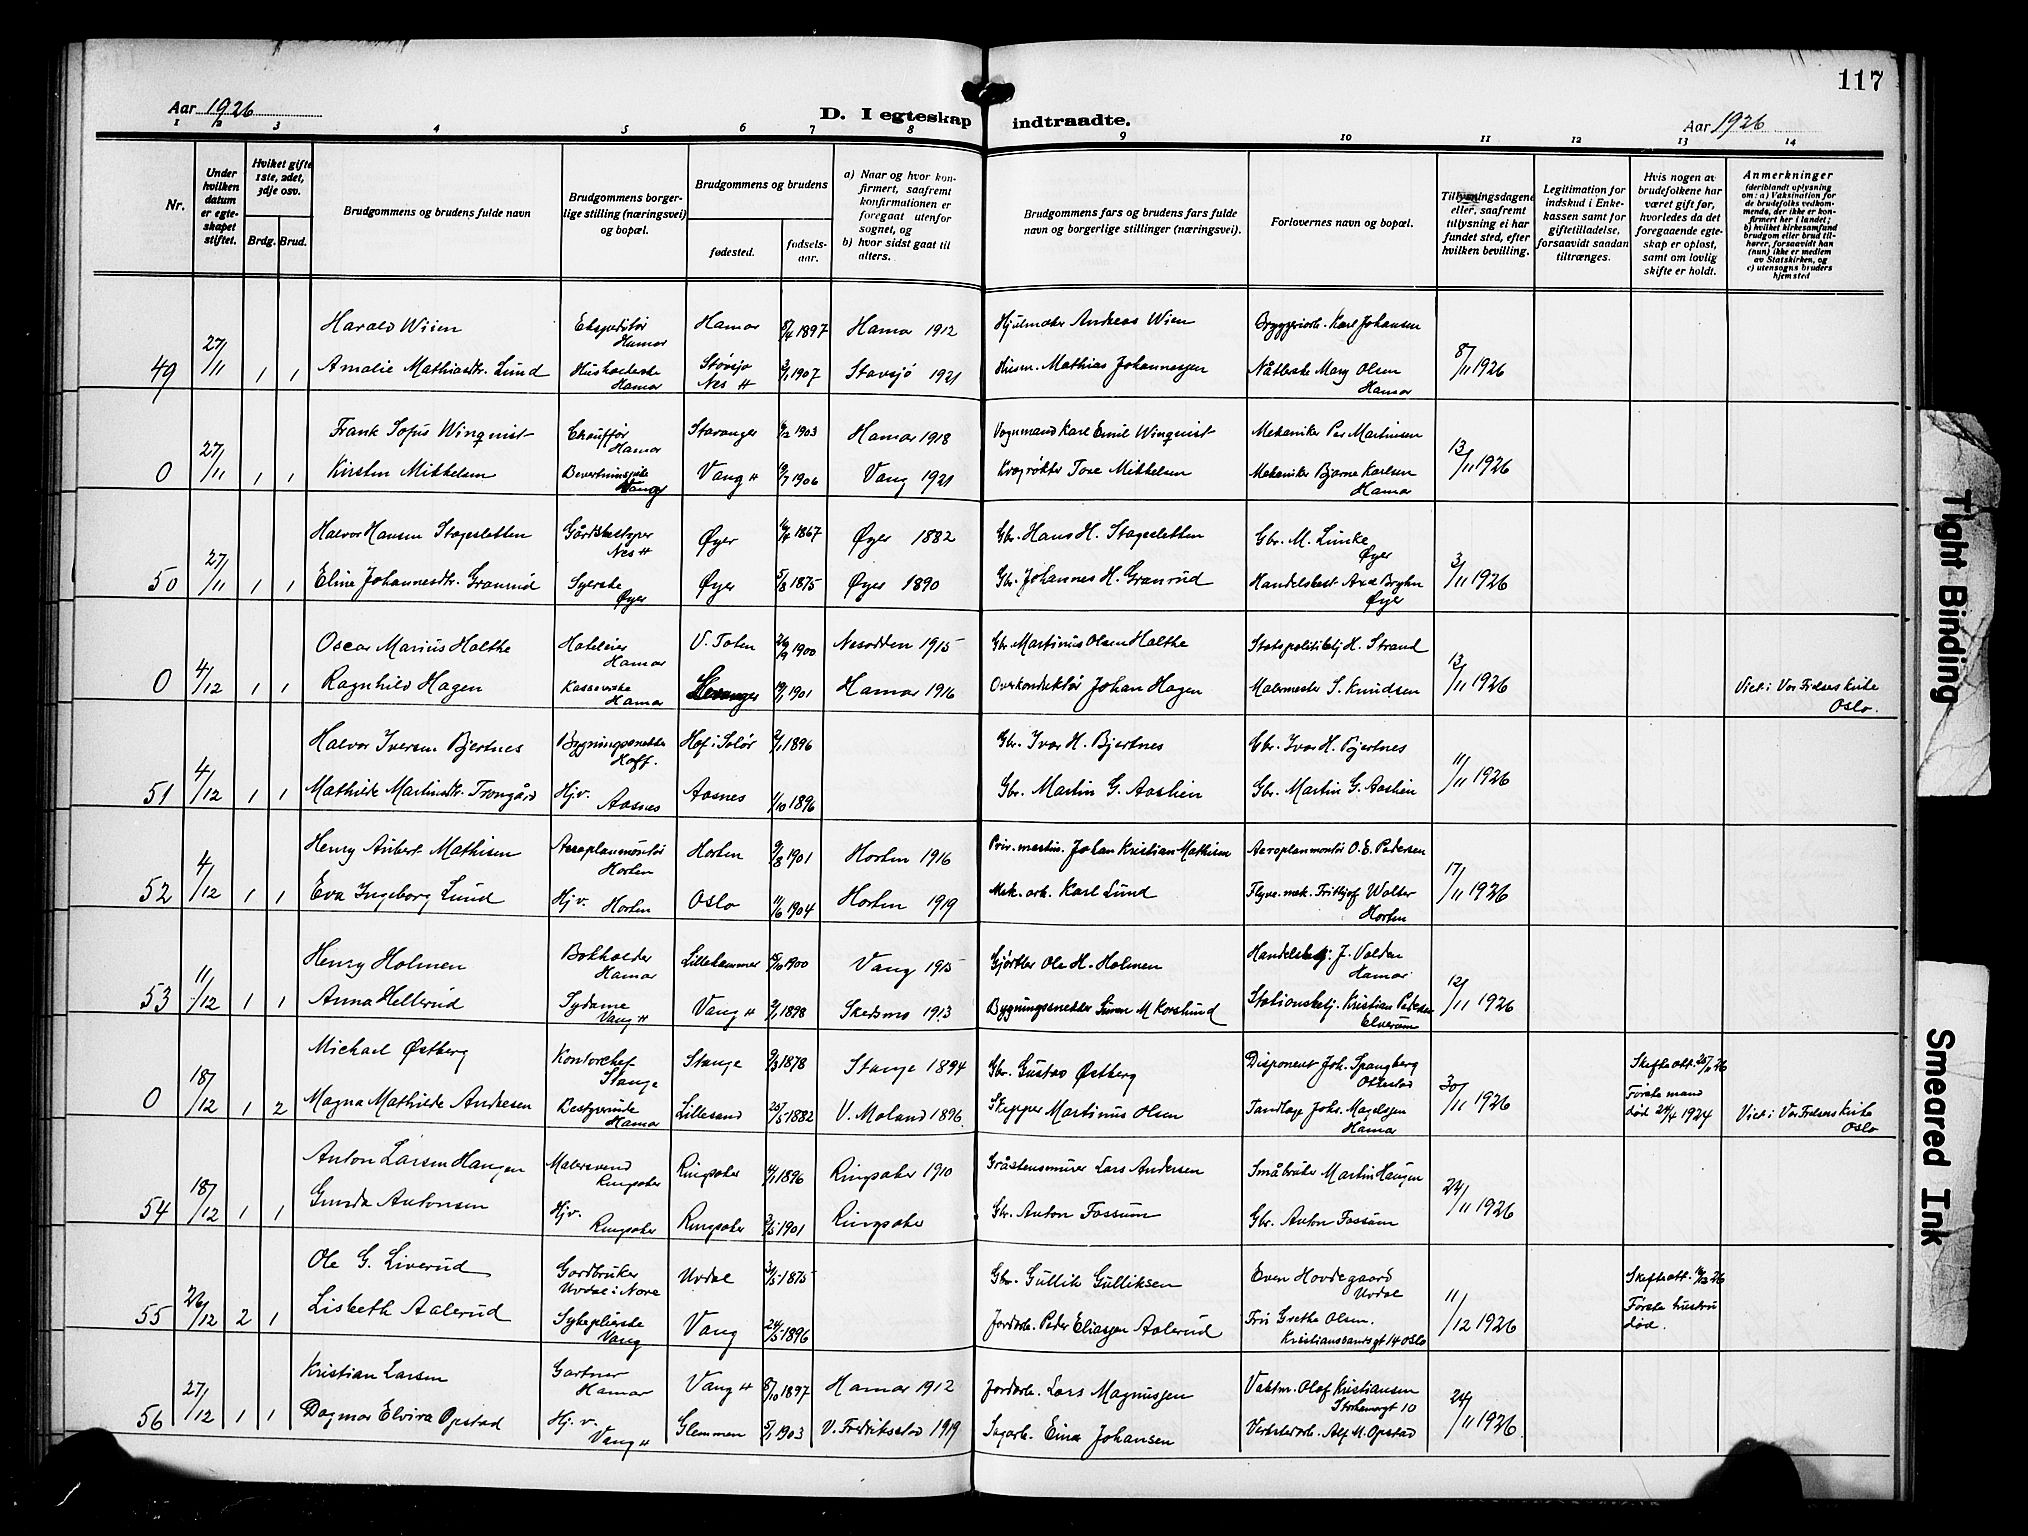 117
Aar 1926
D. I egteskap indtraadte.
Aar 1926
1 2 3 4 5 6 7 8 9 10 11 12 13 14
Nr.
Under hvilken datum er egteskapet stiftet.
Hvilket gifte 1ste, 2det, 3dje osv.
Brdg. Brud.
Brudgommens og brudens fulde navn
Brudgommens borgerlige stilling (næringsvei) og bopæl.
Brudgommens og brudens
fødested.
fødselsaar.
a) Naar og hvor konfirmert, saafremt konfirmationen er foregaat utenfor sognet, og
b) hvor sidst gaat til alters.
Brudgommens fars og brudens fars fulde navn og borgerlige stillinger (næringsvei).
Forlovernes navn og bopæl.
Tillysningsdagene eller, saafremt tillysning ei har fundet sted, efter hvilken bevilling.
Legitimation for indskud i Enkekassen samt for giftetilladelse, forsaavidt saadan tiltrænges.
Hvis nogen av brudefolkene har været gift før, hvorledes da det foregaaende egteskap er opløst, samt om lovlig skifte er holdt.
Anmerkninger
(deriblandt oplysning om: a) Vaksination for de brudefolks vedkommende, der ikke er konfirmert her i landet; b) hvilket kirkesamfund brudgom eller brud tilhører, forsaavidt han (hun) ikke er medlem av Statskirken, og c) utensogns bruders hjemsted
Harald Wiien Ekspeditør Hamar Hamar 8/4 1897 Hamar 1912 Hjulmaker Andreas Wien Bryggeriarb. Karl Johansen
49 27/11 1 1 Amalie Mathiasdtr. Lund Hamar Stavsjø Nes H 1907 Stavsjø 1921 Husm. Mathias Johannessen Mary Olsen Hamar 8/11 1926
Frank Sofus Winquist Chauffør Hamar Stavanger 1903 Hamar 1918 Vognmand Karl Emil Winquist Mekaniker Per Martinsen
0 27/11 1 1 Kirsten Mikkelsen Vang Vang H 1906 Vang 1921 Tore Mikkelsen Mekaniker Bjarne Karlsen Hamar 13/11 1926
Halvor Hansen Stagesletten Nes H Øyer 1867 Øyer 1882 Gbr. Hans H. Stagesletten Gbr. M. Linke Øyer
50 27/11 1 1 Eline Johannesdtr. Granrud Syerske Øyer Øyer 5/8 1875 Øyer 1890 Gbr. Johannes H. Granrud Handelsbest. Bryhn Øyer 3/11 1926
Oscar Marius Holthe Hoteleier Hamar V. Toten 26/9 1900 Nesodden 1915 Gbr. Martinus Olsen Holthe Statspolitibtj. H. Strand
0 4/12 1 1 Ragnhild Hagen Hamar 1901 Hamar 1916 Overkonduktør Johan Hagen Malermester S. Knudsen 13/11 1926 Viet i Vor Frelsers kirke Oslo.
Halvor Iversen Bjertnes Bygningssnekker Hoff. Hof i Solør 1896 Gbr. Ivar H. Bjertnes Gbr. Ivar H. Bjertnes
51 4/12 1 1 Mathilde Martinsdtr. Trongård Hjv. Aasnes Aasnes 1/10 1896 Gbr. Martin G. Aashien Gbr. Martin G. Aashien 11/11 1926
Henry Mathisen Aeroplanmontør Horten Horten 9/8 1901 Horten 1916 Johan Kristian Mathisen Aeroplanmontør O. E. Pedersen
52 4/12 1 1 Eva Ingeborg Lund Hjv. Horten Oslo 11/6 1904 Horten 1919 Mek. arb. Karl Lund Flyve. mek. Fritjof Walter Horten 17/11 1926
Henry Holmen Bokholder Hamar Lillehammer 1900 Vang 1915 Gjørtler Ole H. Holmen Handelsbtj. J. Volden Hamar
53 11/12 1 1 Anna Hellerud Sydame Vang H Vang H 1898 Skedsmo 1913 Bygningssnekker Simen M Korslund Stationsbtj. Kristian Pedersen Elverum 12/11 1926
Michael Østberg Kontorchef Stange Stange 9/3 1878 Stange 1894 Gbr. Gustav Østberg Disponent Joh. Spangberg Ottestad Skifteatt.
0 18/12 1 2 Magna Mathilde Andresen Bestyrerinde Hamar Lillesand 25/5 1882 V. Moland 1896. Skipper Martinus Olsen Tandlæge Johs. Magelssen Hamar 30/11 1926 Første mand død 24/4 1924 Viet i Vor Frelsers kirke Oslo
Anton Larsen Haugen Malersvend Ringsaker Ringsaker 1896 Ringsaker 1910 Gråstensmurer Lars Andersen Småbruker Martin Haugen
54 18/12 1 1 Gunda Antonsen Hjv. Ringsaker Ringsaker 1901 Ringsaker Gbr. Anton Fossum Gbr. Anton Fossum 24/11 1926
Ole G. Liverud Gardbruker Uvdal i Nore Uvdal 1875 Gbr. Gullik Gulliksen Even Hovdegaard Uvdal Skifteatt.
55 26/12 2 1 Lisbeth Aalerud Sykepleierske Vang Vang 24/5 1896 Jordarb. Peder Eliassen Aalerud Frü Grethe Olsen. Kristianssandsgt 14 Oslo 11/12 1926 Første hustru død.
Kristian Larsen Gartner Hamar Vang H 8/10 1897 Hamar 1912 Jordarb. Lars Magnussen Vaktm. Olaf Kristiansen Storhamargt 10
56 27/12 1 1 Dagmar Elvira Opstad Hj. v. Vang H Glemmen 5/1 1903 V. Fredrikstad 1919 Sagarb. Einar Johansen Verkstedarb. Alf M. Opstad 24/11 1926
Tight Binding
Smeared Ink